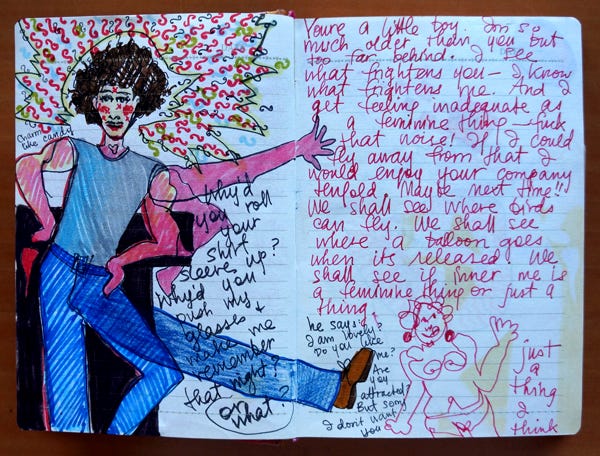 Charm
like candy
Why'd
you roll
your
shirt
sleeve up?
why'd you
push my
glasses +
make me
remember
that night?
or
what?
You're a little boy. Im so
much older than you but
too far behind. I see
what frightens you — I know
what frightens me. And I
get feeling inadequate as
a feminine thing — fuck
that noise! If I could
fly away from that I
would enjoy your company
tenfold. Maybe next time!!
We shall see where birds
can fly. We shall see
where a balloon goes
when its released. We
shall see if inner me is
a feminine thing or just a
thing.
he says:
I am lovely?
Do you like
me?
Are
you
attracted?
But sorry
I don't want
you
just
a
thing
I
think